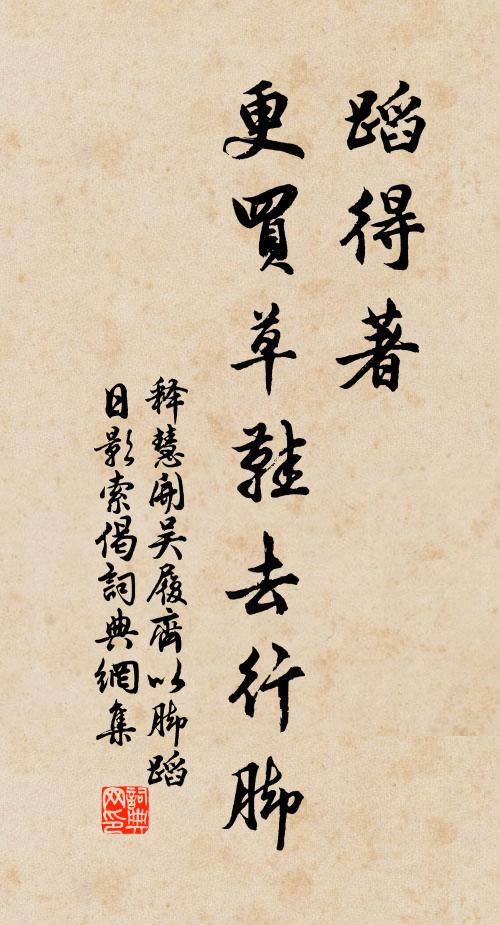 蹈得著
更買草鞋去行脚
释慧開吴履齋以脚蹈
日影索偈詞典網集
詞典网印